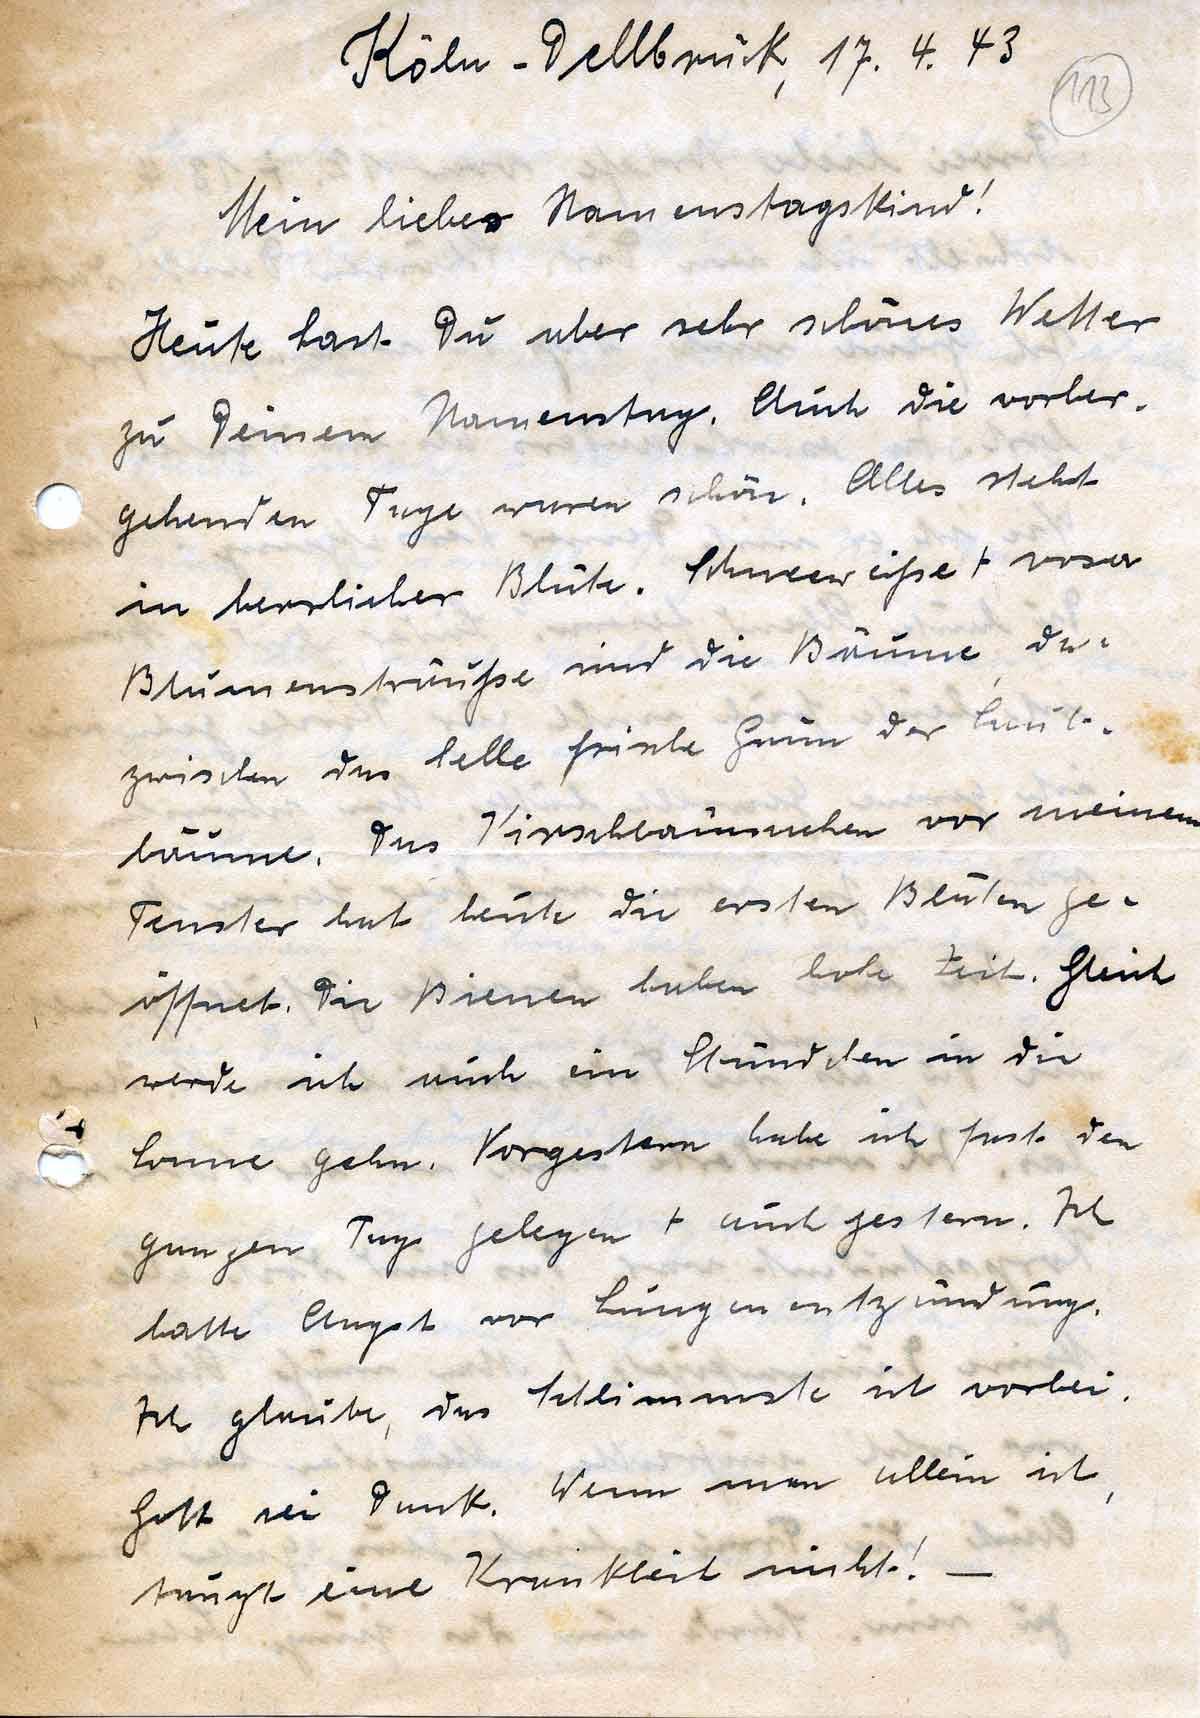 Köln-Dellbrück, 17. 4. 43
113
Mein liebes Namenstagskind!
Heute hast Du aber sehr schönes Wetter
zu Deinem Namenstag. Auch die vorher-
gehenden Tage waren schön. Alles steht
in herrlicher Blüte. Schneeweiße + rosa
Blumensträuße sind die Bäume, da-
zwischen das helle frische Grün der Laub-
bäume. Das Kirschbäumchen vor meinem
Fenster hat heute die ersten Blüten ge-
öffnet. Die Bienen haben hohe Zeit. Gleich
werde ich auch ein Stündchen in die
Sonne gehn. Vorgestern habe ich fast den
ganzen Tag gelegen + auch gestern. Ich
hatte Angst vor Lungenentzündung.
Ich glaube, das Schlimmste ist vorbei.
Gott sei Dank. Wenn man allein ist,
taugt eine Krankheit nicht! —